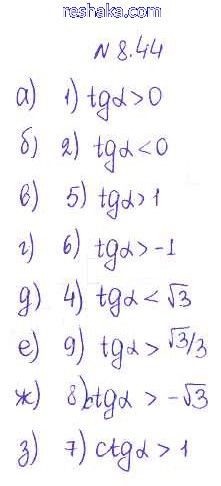 reshaka.com
N 8.44
а) 1) tgα > 0
б) 2) tgα < 0
в) 5) tgα > 1
г) 6) tgα > -1
д) 4) tgα < √3
е) 9) tgα > √3/3
ж) 8) ctgα > -√3
з) 7) ctgα > 1